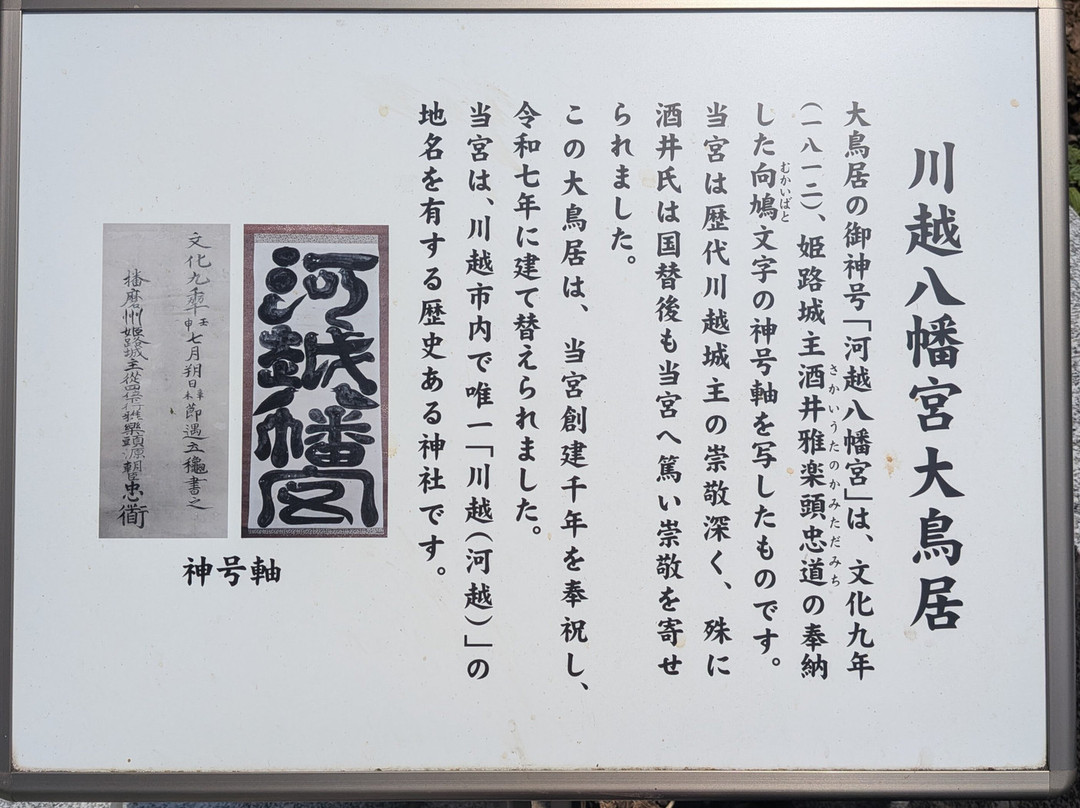 川越八幡宮大鳥居
大鳥居の御神号「河越八幡宮」は、文化九年
(一八一二)、姫路城主酒井雅楽頭忠道の奉納
さかいうたのかみただみち
した向鳩文字の神号軸を写したものです。
むかいばと
当宮は歴代川越城主の崇敬深く、殊に
酒井氏は国替後も当宮へ篤い崇敬を寄せ
られました。
この大鳥居は、当宮創建千年を奉祝し、
令和七年に建て替えられました。
当宮は、川越市内で唯一「川越(河越)」の
地名を有する歴史ある神社です。
河越八幡宮
文化九 壬申七月朔日 節遇五 書之
播磨州姫路城主従四位 雅樂頭源朝臣忠
神号軸